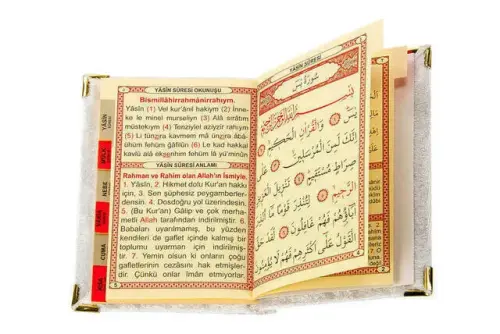 YÂSÎN SÛRESİ OKUNUŞU
Bismillâhirrahmânirrahıym.
Yâsîn (1) Vel kur'ânil hakiym (2) İnne-
ke le minel murseliyn (3) Alâ sırâtım
müstekıym (4) Tenziylel aziyzir rahıym
(5) Li tüngira kavmem mâ üngira âbâ-
ühum fehüm ğâfilûn (6) Le kad hakkal
kavlü alâ ekserihim fehüm lâ yü'minûn
YÂSÎN SÛRESİ ANLAMI
Rahman ve Rahim olan Allah'ın İsmiyle.
1. Yâsîn, 2. Hikmet dolu Kur'an hakkı
için, 3. Sen şüphesiz peygamberler-
densin. 4. Dosdoğru yol üzerindesin.
5. (Bu Kur'an) Gâlip ve çok merha-
metli Allah tarafından indirilmiştir. 6.
Babaları uyarılmamış, bu yüzden
kendileri de gaflet içinde kalmış bir
toplumu uyarman için indirilmiş-
tir. 7. Yemin olsun ki onların çoğu
gafletlerinin cezâsını hak etmişler-
dir. Çünkü onlar îmân etmiyorlar
YÂSÎN
MÜLK
NEBE
CUMA
KISA
YASİN SÛRESİ
سُورَةُ يٰسٓ
يٰسٓ وَالْقُرْاٰنِ الْحَكِيمِ
اِنَّكَ لَمِنَ الْمُرْسَلِينَ
صِرَاطٍ مُسْتَقِيمٍ تَنْزِيلَ الْعَزِيزِ
الرَّحِيمِ لِتُنْذِرَ قَوْمًا مَا اُنْذِرَ
اٰبَاؤُهُمْ فَهُمْ غَافِلُونَ لَقَدْ حَقَّ
الْقَوْلُ عَلٰٓى اَكْثَرِهِمْ فَهُمْ لَا يُؤْمِنُونَ